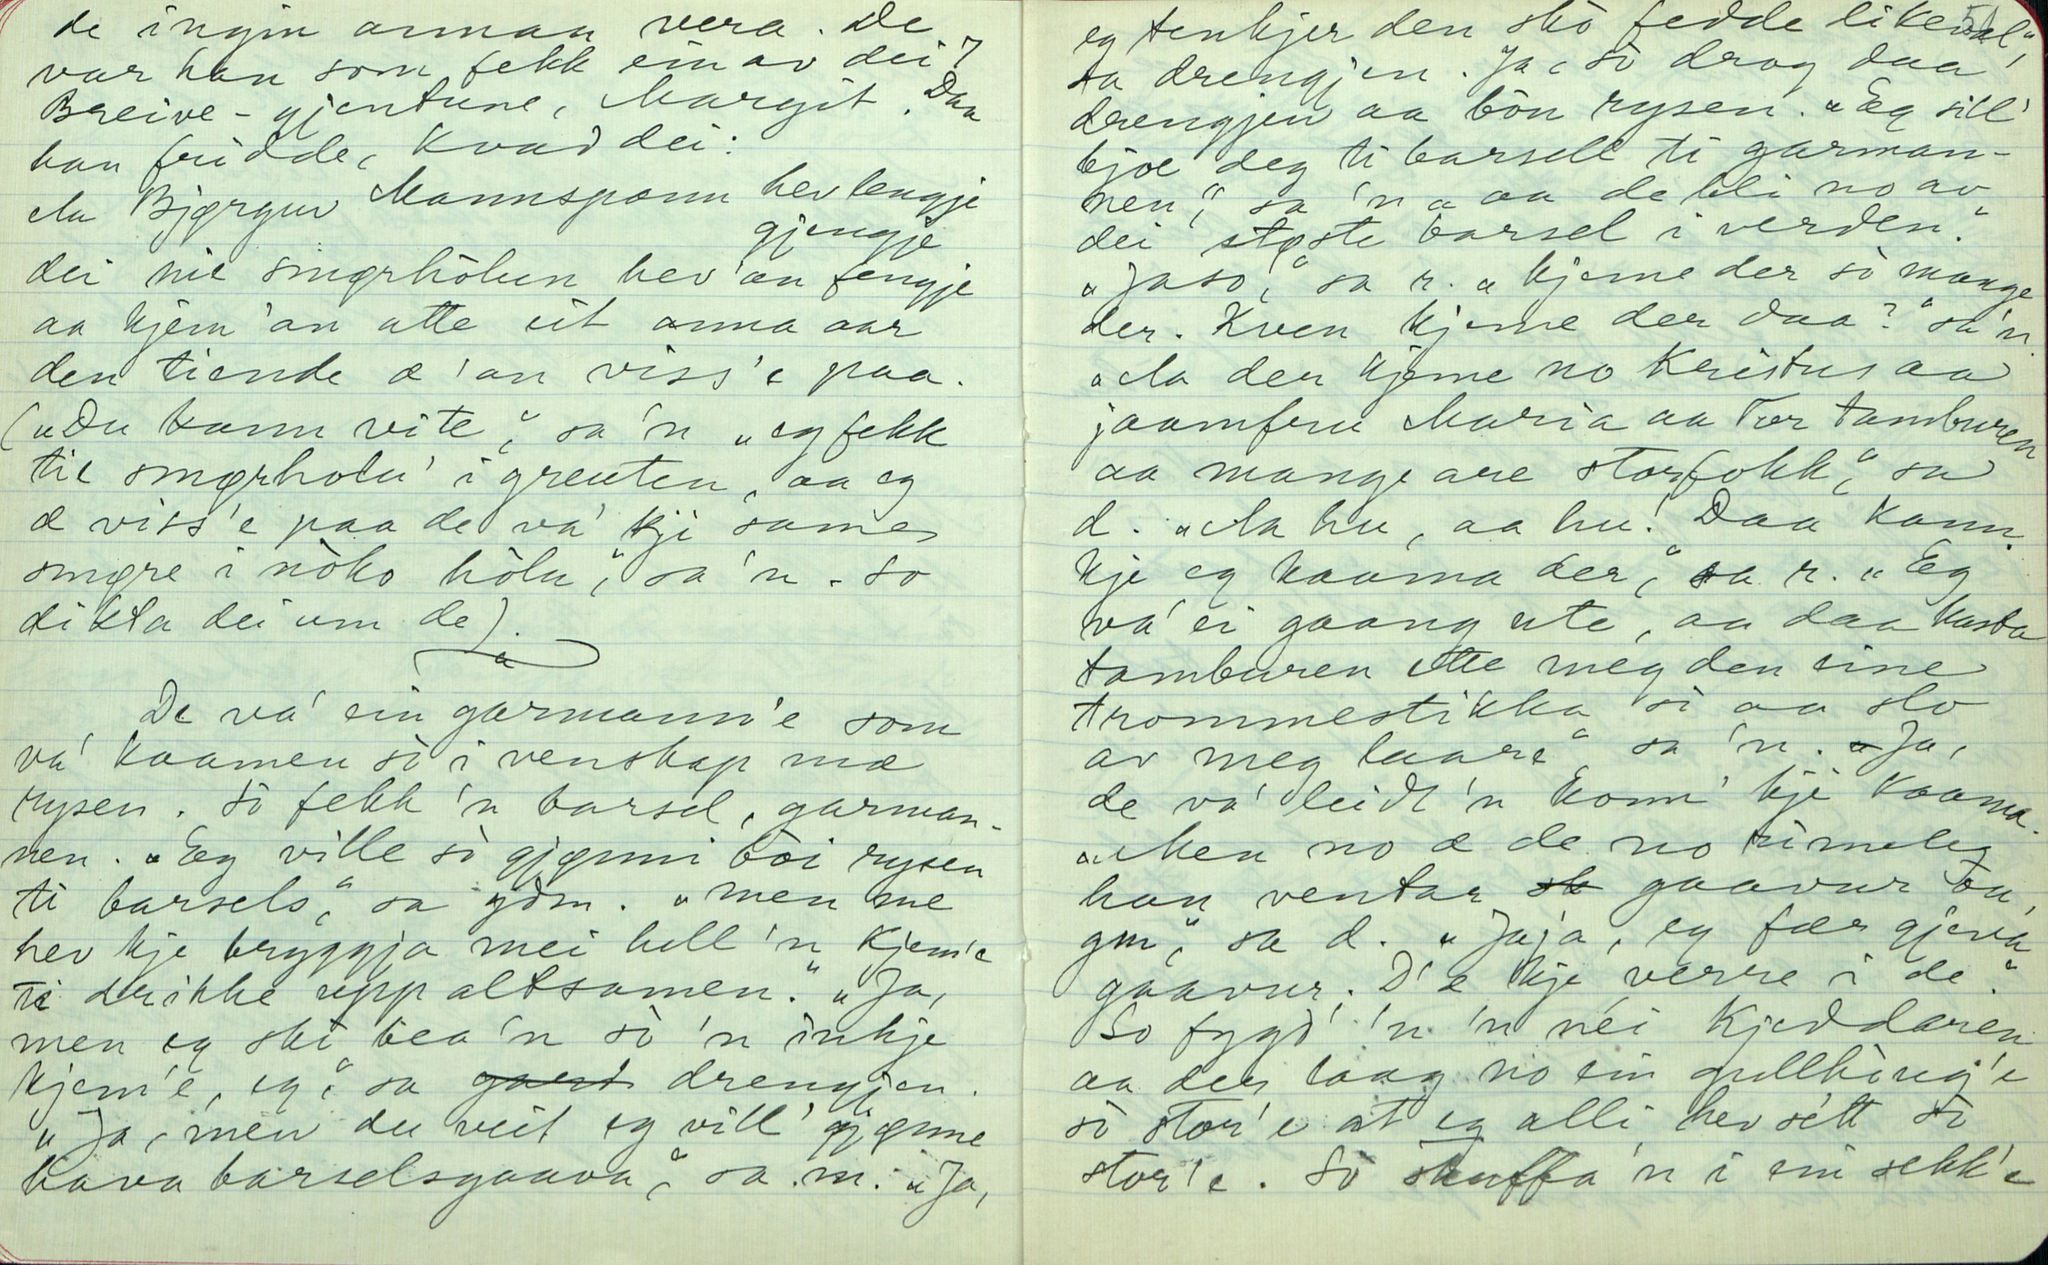 de ingin annan vera. De
var han som fekk ein av dei
Breive-gjentune, Margit. Daa
han fridde, kvad dei:
Aa Bjørguv Mannspann hev lengje
gjengje
dei nie smørholun hev'an fengje
aa kjem'an atte eit anna aar
den tiende æ'an viss'e paa.
("Du kann vite", sa'n "eg fekk
tie smørholu' i grauten, aa eg
æ viss'e paa de va' kji same
smøre i noko hòlu", sa'n. So
dikta dei um de).
De va' ein garmann'e som
va' kaamen so i venskap mæ
rysen. So fekk 'n barsel, garman-
nen. "Eg ville so gjønni böi rysen
ti barsels", sa gdm. "men me
hev kje bryggja mei hell'n kjem'e
ti drikke upp altsamen." "Ja,
men eg ski bea'n so 'n inkje
kjem'e, eg", sa gard drengjen.
"Ja, men du veit eg vill' gjønne
hava barselsgaava", sa m. "Ja,
51
eg tenkjer den sko fedde likevel",
sa drengjen. Ja, so drog daa
drengjen aa bön rysen. "Eg sill'
bjoe deg ti barsell ti garman-
nen", sa'n "aa de bli no av
dei støste barsel i verden."
"Jaso", sa r. "kjeme der so mange
der. Kven kjeme der daa?" sa'n.
"Aa der kjeme no Kristus aa
jaamfru Maria aa Tor tamburen
aa mange are storfokk", sa
d. "Aa hu, aa hu! Daa kann
kje eg kaama der", sa r. "Eg
va' ei gaang ute, aa daa kasta
tamburen ette meg den eine
trommestikka si aa slo
av meg laare" sa'n. "Ja,
de va' leidt'n konn' kje kaama.
"Men no æ de no rimeleg
han ventar sk gaavur ön,
gm", sa d. "Jaja, eg fær gjeva
gaavur. D'æ kje verre i de."
So fygd' 'n 'n nei kjeddaren
aa der laag no ein gullhaug'e
so stor'e at eg alli hev sétt so
stor'e. So skuffa'n i ein sekk'e